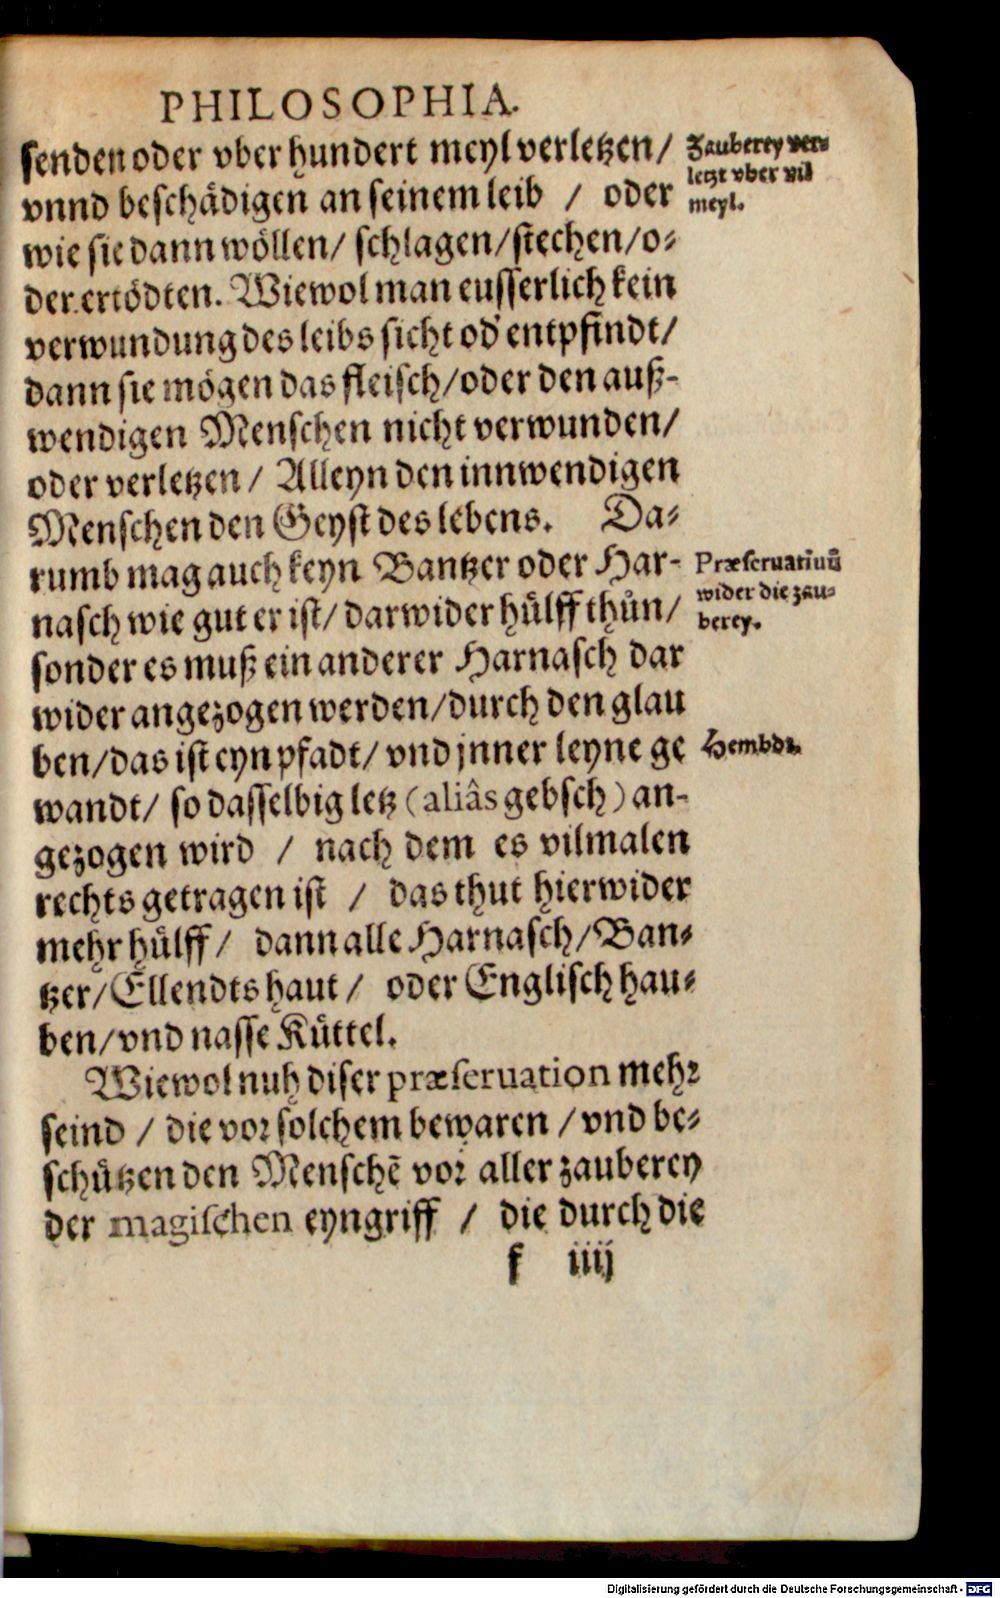 PHILOSOPHIA.
senden oder vber hundert meyl verletzen/
vnnd beschådigen an seinem leib / oder
wie sie dann wöllen/ schlagen/stechen/o⸗
der ertödten. Wiewol man eusserlich kein
verwundung des leibs sicht od' entpfindt/
dann sie mögen das fleisch/oder den auß-
wendigen Menschen nicht verwunden/
oder verletzen/ Alleyn den innwendigen
Menschen den Geyst des lebens. Da⸗
rumb mag auch keyn Bantzer oder Har-
nasch wie gut er ist/ darwider hülff thůn/
sonder es muß ein anderer Harnasch dar
wider angezogen werden/durch den glau
ben/das ist eyn pfadt/ vnd jnner leyne ge
wandt/ so dasselbig letz (aliâs gebsch) an-
gezogen wird / nach dem es vilmalen
rechts getragen ist / das thut hierwider
mehr hülff/ dann alle Harnasch/Ban⸗
tzer/Ellendts haut/ oder Englisch hau⸗
ben/vnd nasse Küttel.
Wiewol nuh diser præseruation mehr
seind / die vor solchem bewaren / vnd be⸗
schützen den Menschē vor aller zauberey
der magischen eyngriff / die durch die
f iiij
Zauberey ver⸗
letzt vber vil
meyl.
Præseruatiuū
wider die zau⸗
berey.
Hembdr.
Digitalisierung gefördert durch die Deutsche Forschungsgemeinschaft - DFG